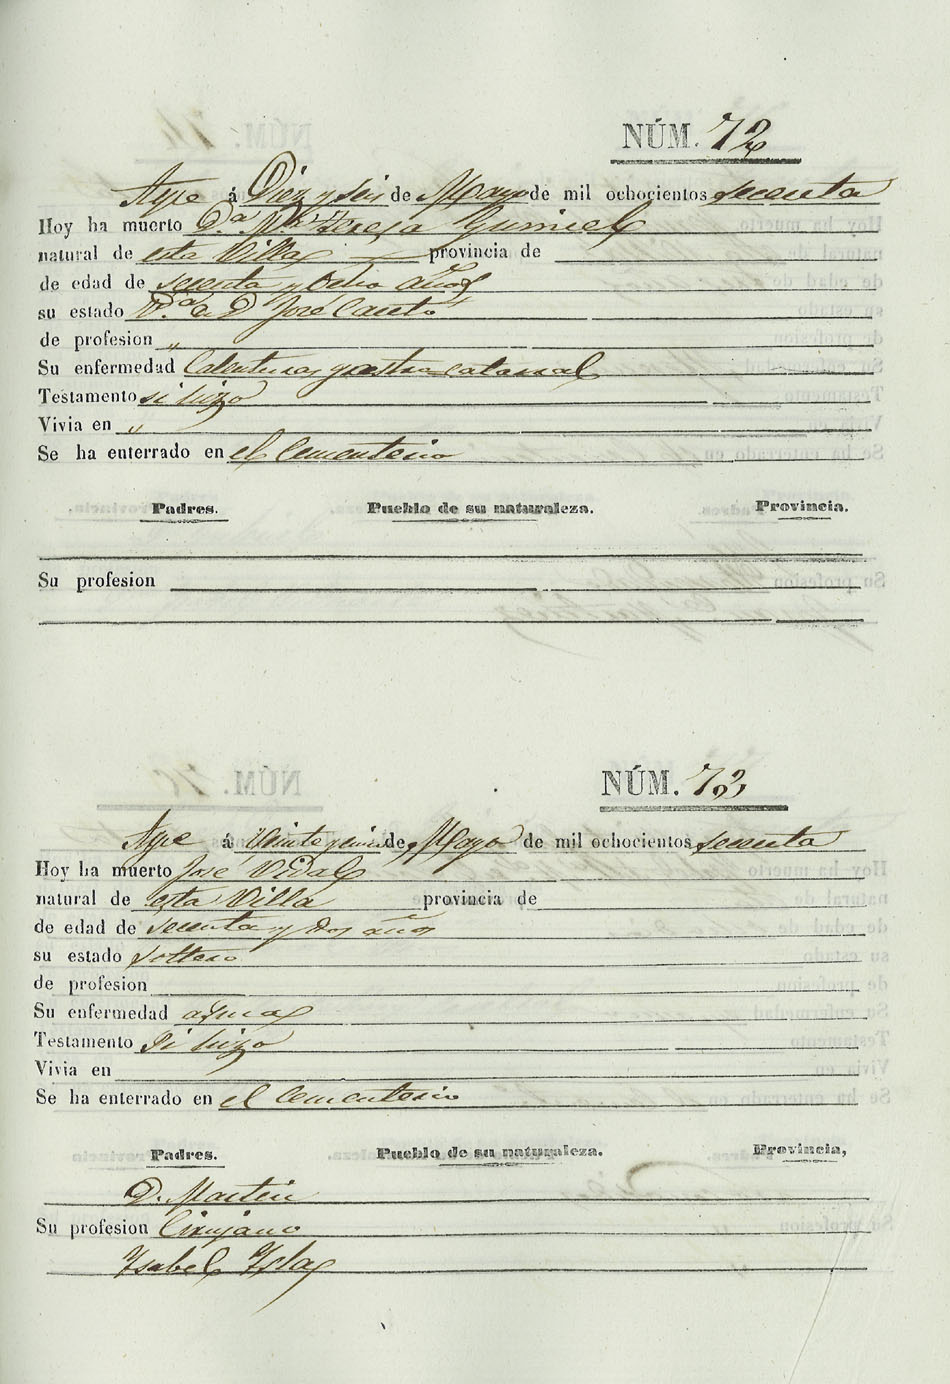 NÚM. 72
Aspe á Diez y seis de Mayo de mil ochocientos sesenta
Hoy ha muerto D.ª M.ª Teresa Gumiel
natural de esta Villa provincia de
de edad de sesenta y ocho años
su estado V.ª de D. José Canto
de profesion "
Su enfermedad Calenturas gastro catarral
Testamento si hizo
Vivia en "
Se ha enterrado en el Cementerio
Padres. Pueblo de su naturaleza. Provincia.
Su profesion
NÚM. 73
Aspe á Veinte y cinco de Mayo de mil ochocientos sesenta
Hoy ha muerto José Vidal
natural de esta Villa provincia de
de edad de sesenta y dos años
su estado soltero
de profesion
Su enfermedad asma
Testamento si hizo
Vivia en
Se ha enterrado en el Cementerio
Padres. Pueblo de su naturaleza. Provincia,
D. Martin
Su profesion Cirujano
Ysabel Ysla